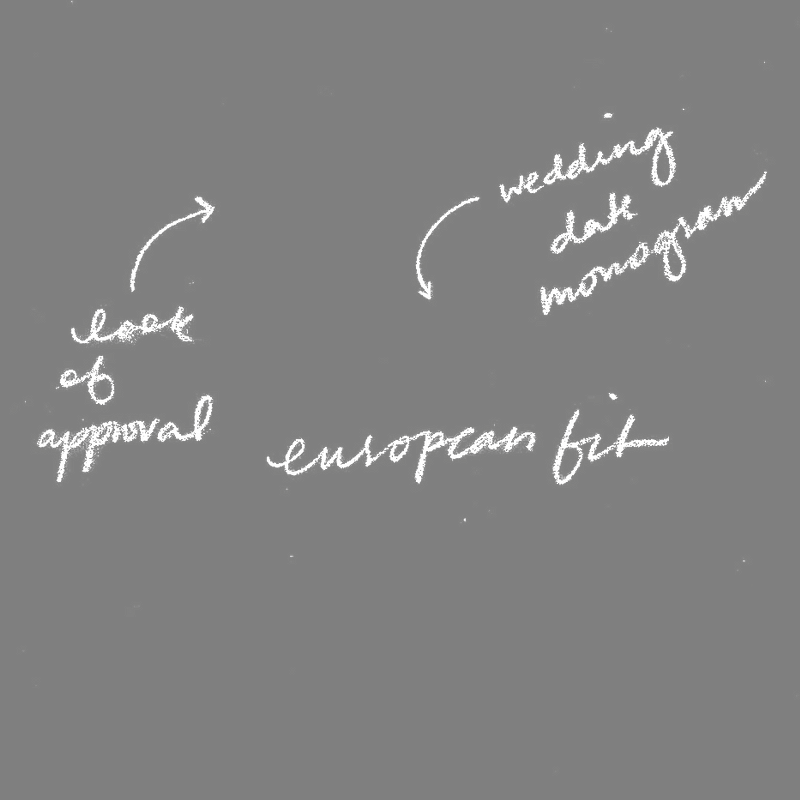 wedding
date
monogram
look
of
approval
european fit